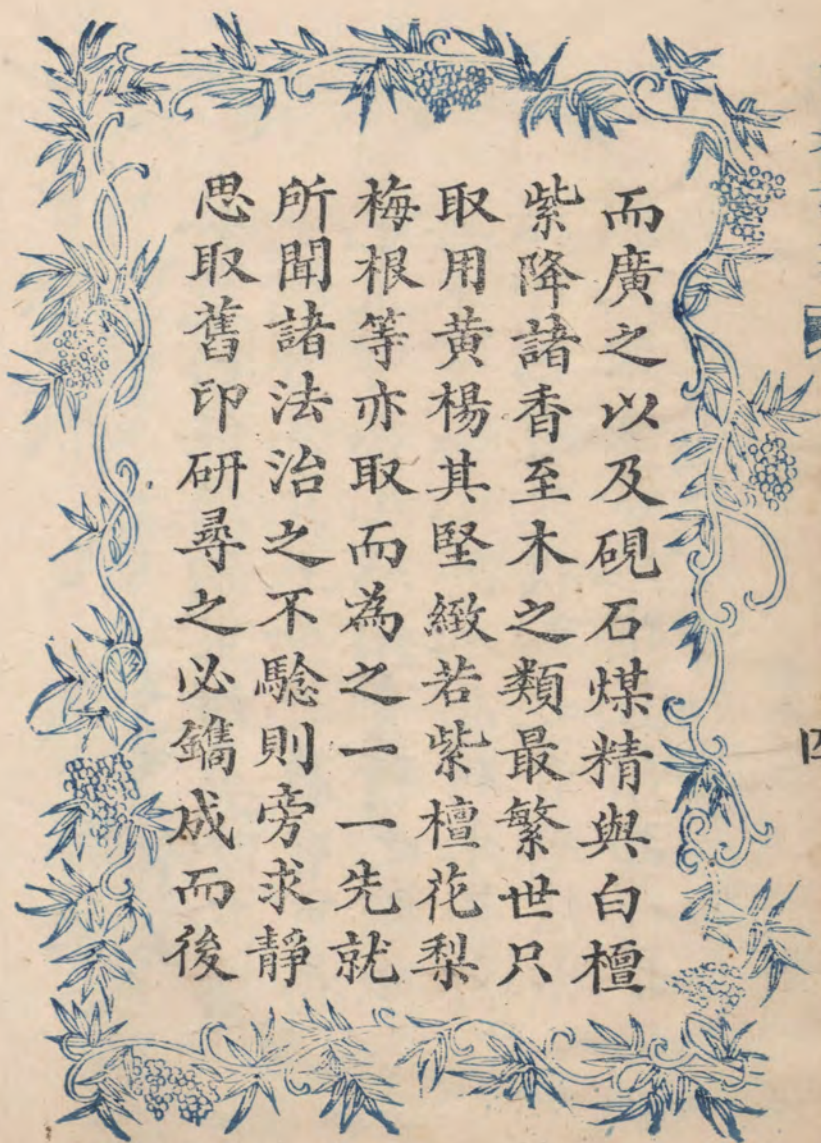 而廣之以及硯石煤精與白檀
紫降諸香至木之類最繁世只
取用黄楊其堅緻若紫檀花梨
梅根等亦取而為之一一先就
所聞諸法治之不驗則旁求靜
思取舊印研尋之必鐫成而後